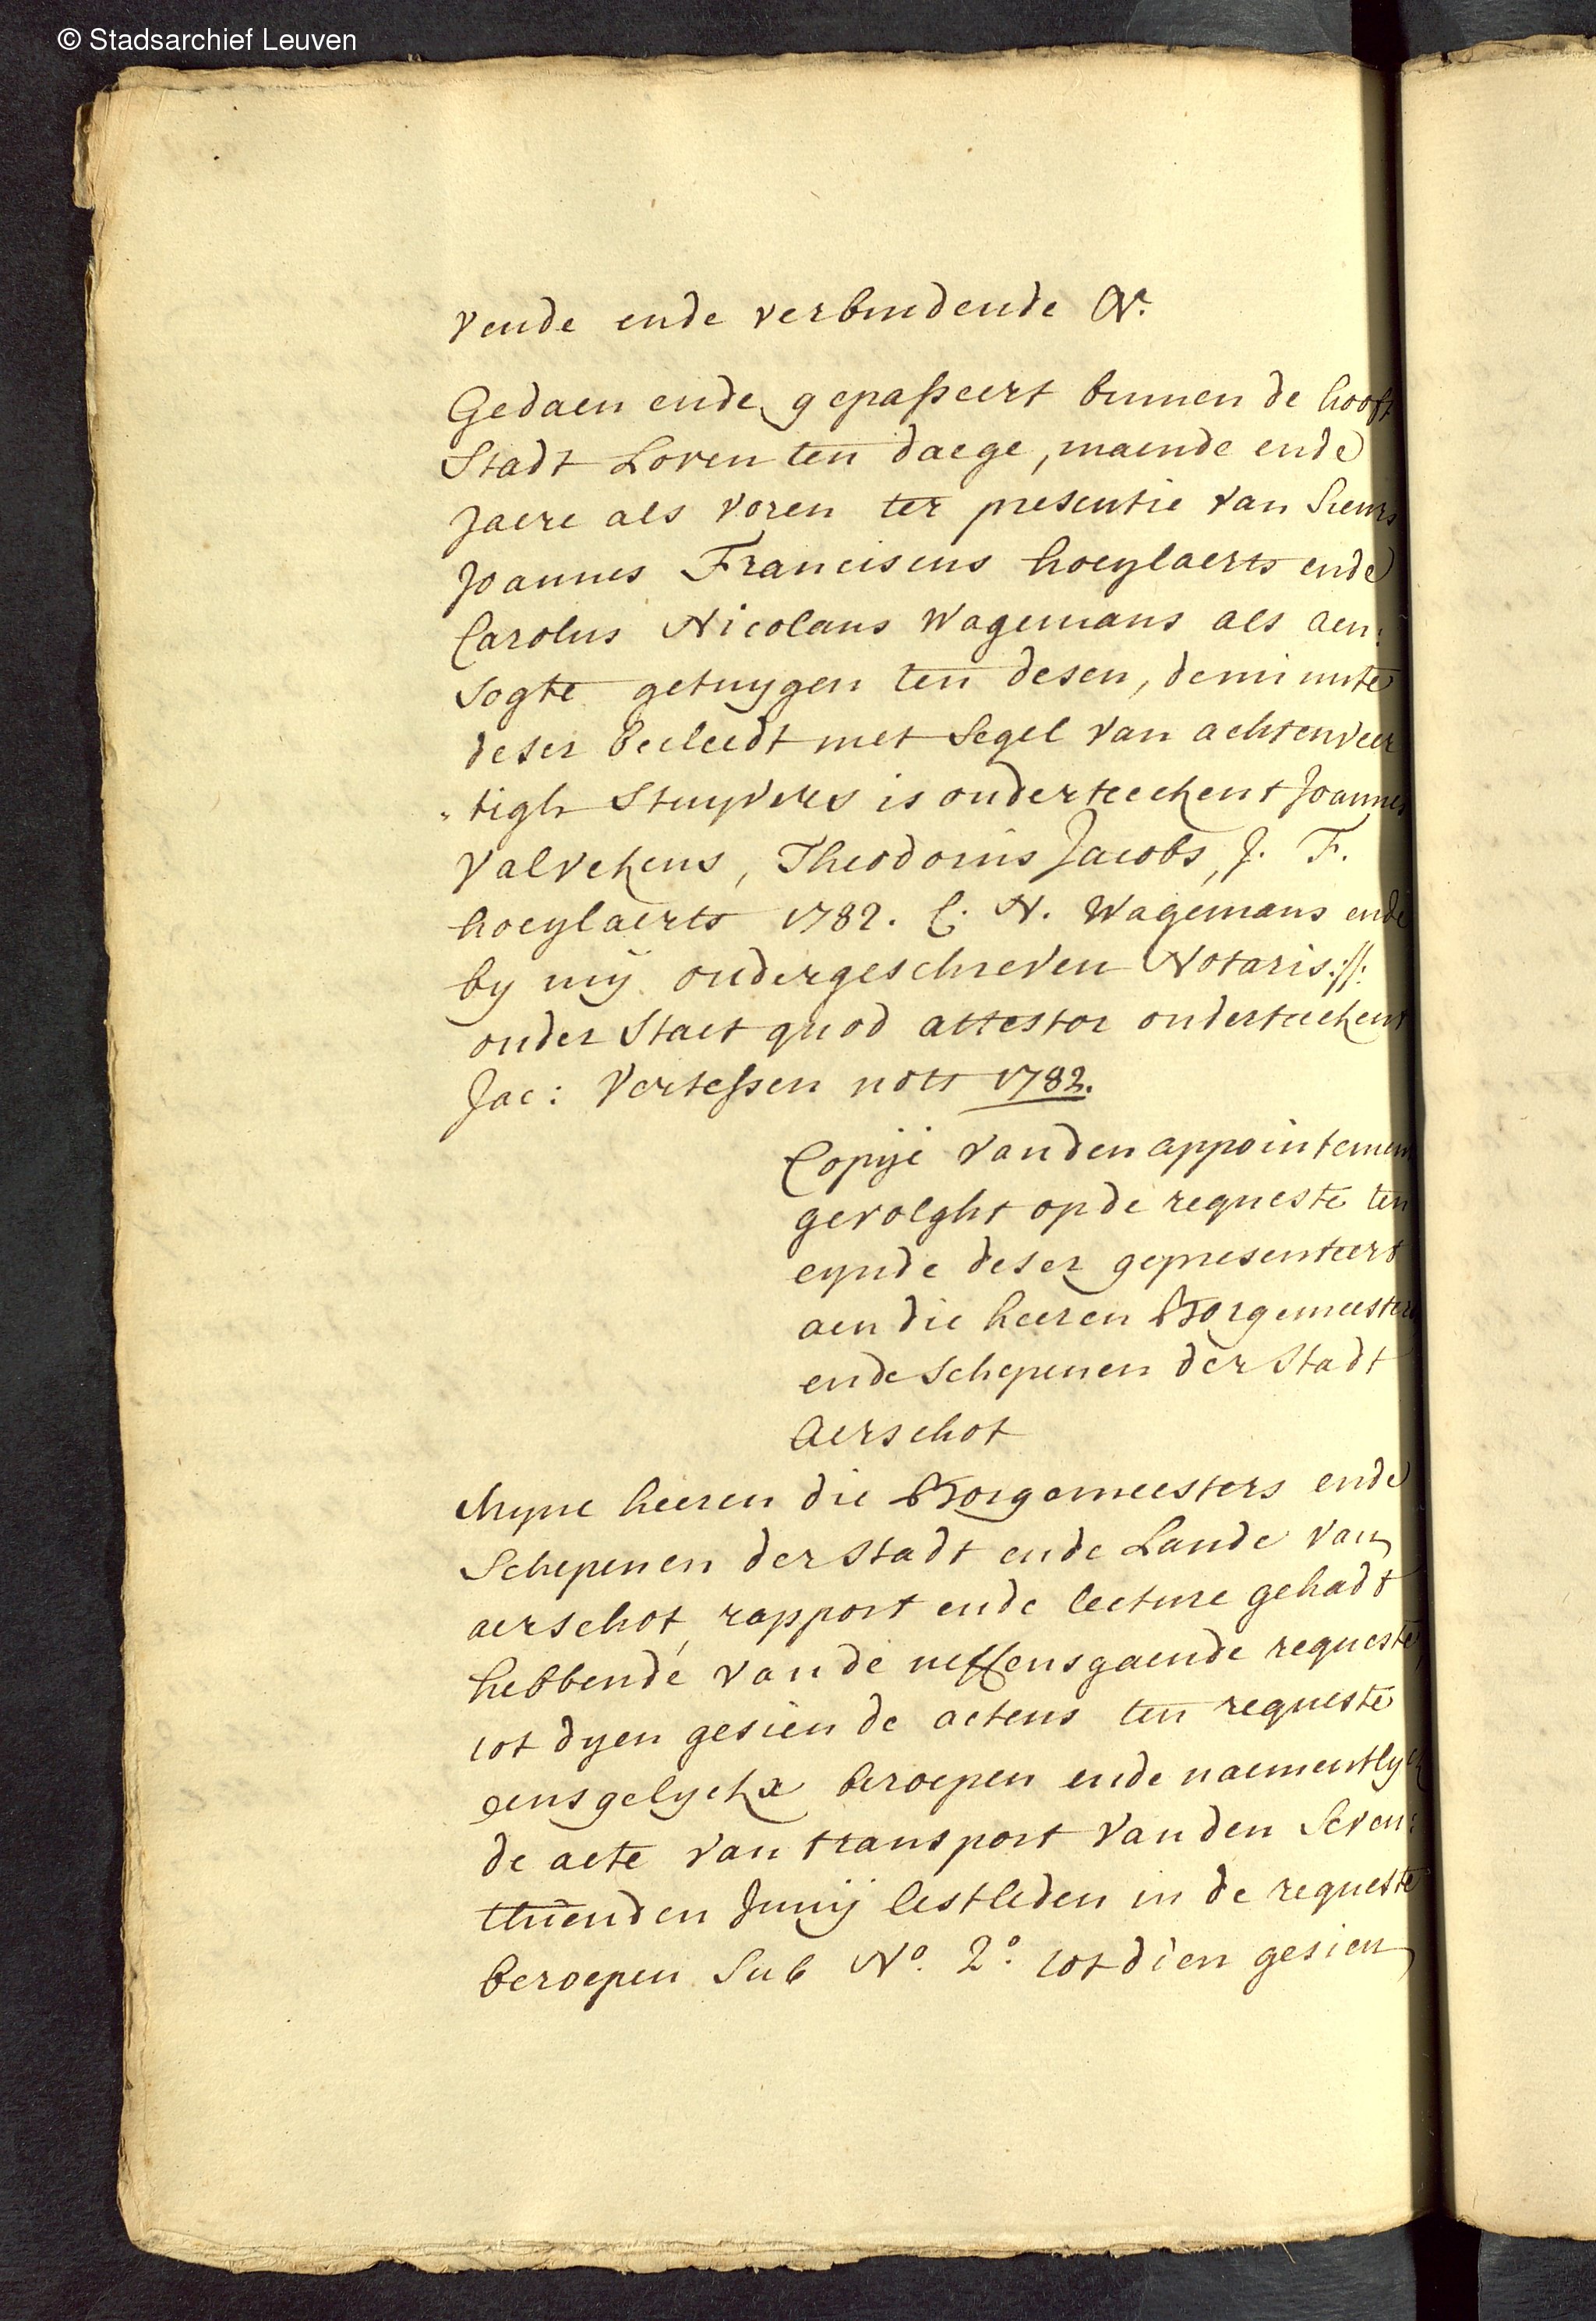 © Stadsarchief Leuven
vende ende verbindende &a.
Gedaen ende gepasseert binnen de hooft
Stadt Loven ten daege, maende ende
Jaere als voren ter presentie van Sieurs
Joannes Franciscus hoeylaerts ende
Carolus Nicolaus Wagemans als aen:
sogte getuygen ten desen, de minute
deser becleedt met Segel van achtenveer
"tigh Stuyvers is onderteeckent Joannes
Valvekens, Theodorus Jacobs, J. F.
hoeylaerts 1782. C. N. Wagemans ende
by mij ondergeschreven Notaris://:
onder Staet quod attestor onderteekent
Jac: Vertessen nots 1782.
Copije vanden appointement
gevolght op de requeste ten
eynde deser gepresenteert
aen die heeren Borgemeesters
ende Schepenen der Stadt
Aerschot
Myne heeren die Borgemeesters ende
Schepenen der Stadt ende Lande van
aerschot, rapport ende lecture gehadt
hebbende van de neffensgaende requeste,
tot dyen gesien de actens ten requeste
eensgelyckx beroepen ende naementlyck
de acte van transport van den Seven:
thienden Junij lestleden in de requeste
beroepen Sub No. 2o. tot dien gesien